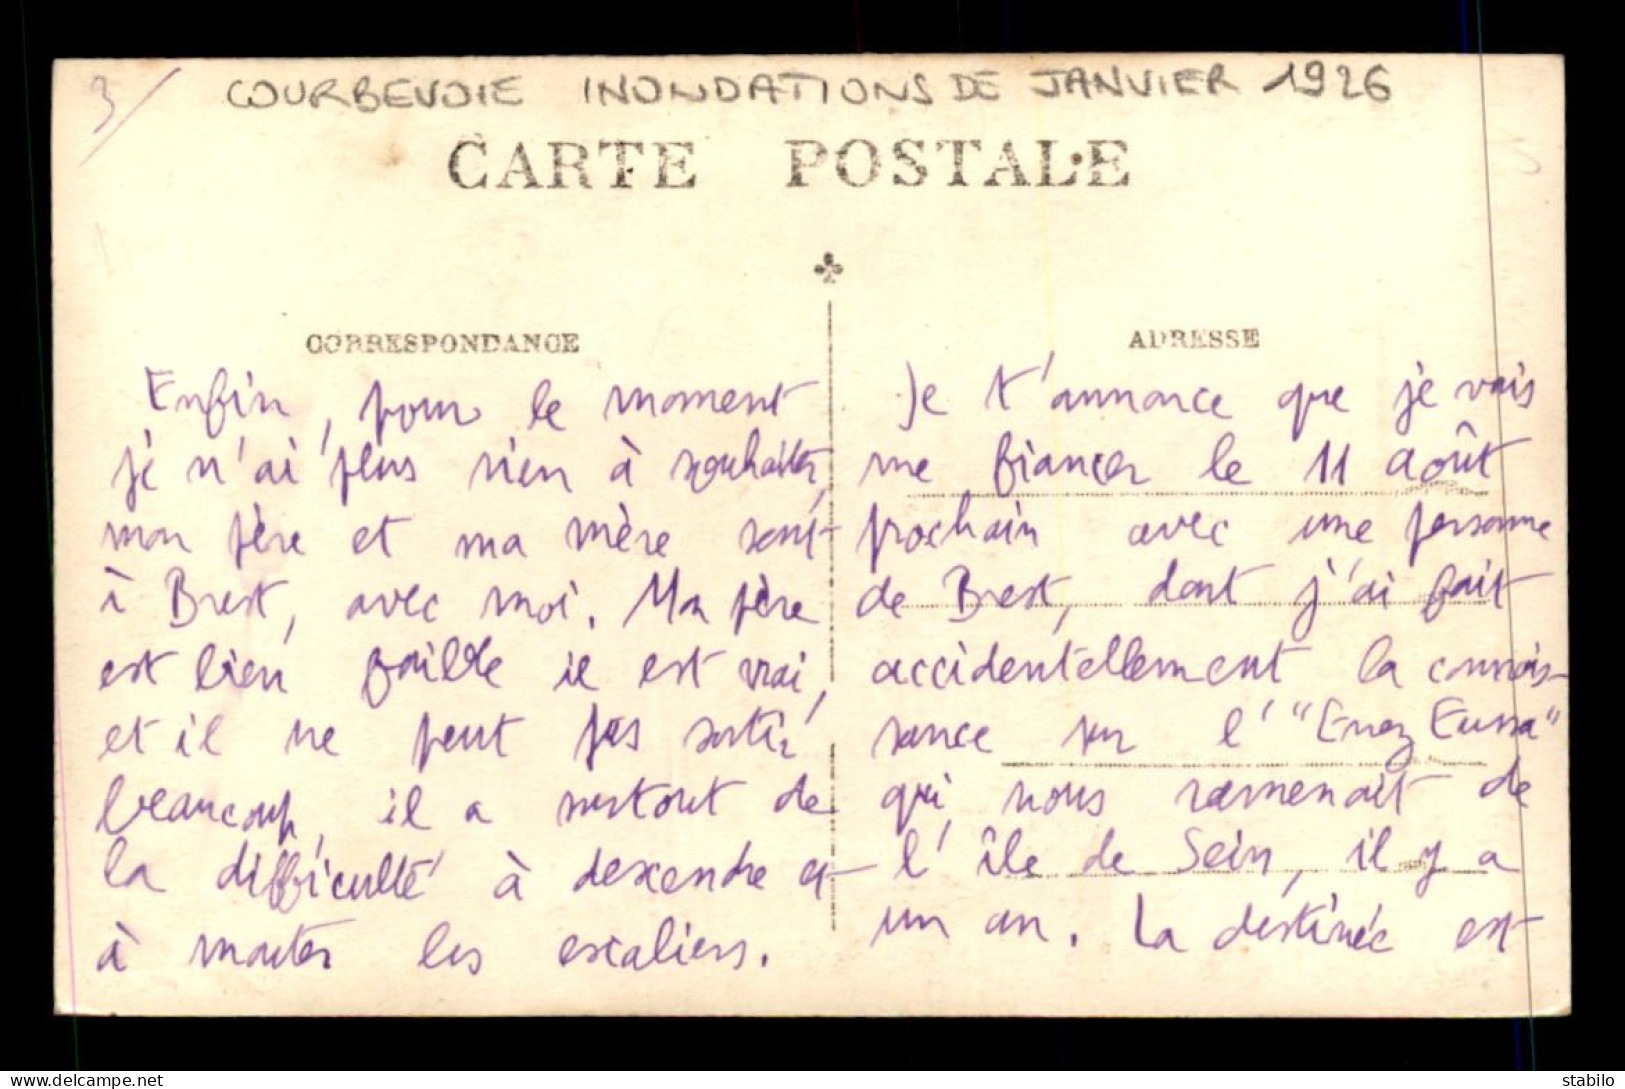 3/
COURBEVOIE INONDATIONS DE JANVIER 1926
CARTE POSTALE
CORRESPONDANCE
Enfin, pour le moment
je n'ai plus rien à souhaiter,
mon père et ma mère sont
à Brest, avec moi. Mon père
est bien faible il est vrai,
et il ne peut pas sortir
beaucoup, il a surtout de
la difficulté à descendre et
à monter les escaliers.
ADRESSE
Je t'annonce que je vais
me fiancer le 11 août
prochain avec une personne
de Brest, dont j'ai fait
accidentellement la connais-
sance sur l'"Enez Eussa"
qui nous ramenait de
l'île de Sein, il y a
un an. La destinée est
delcampe.net
stabilo